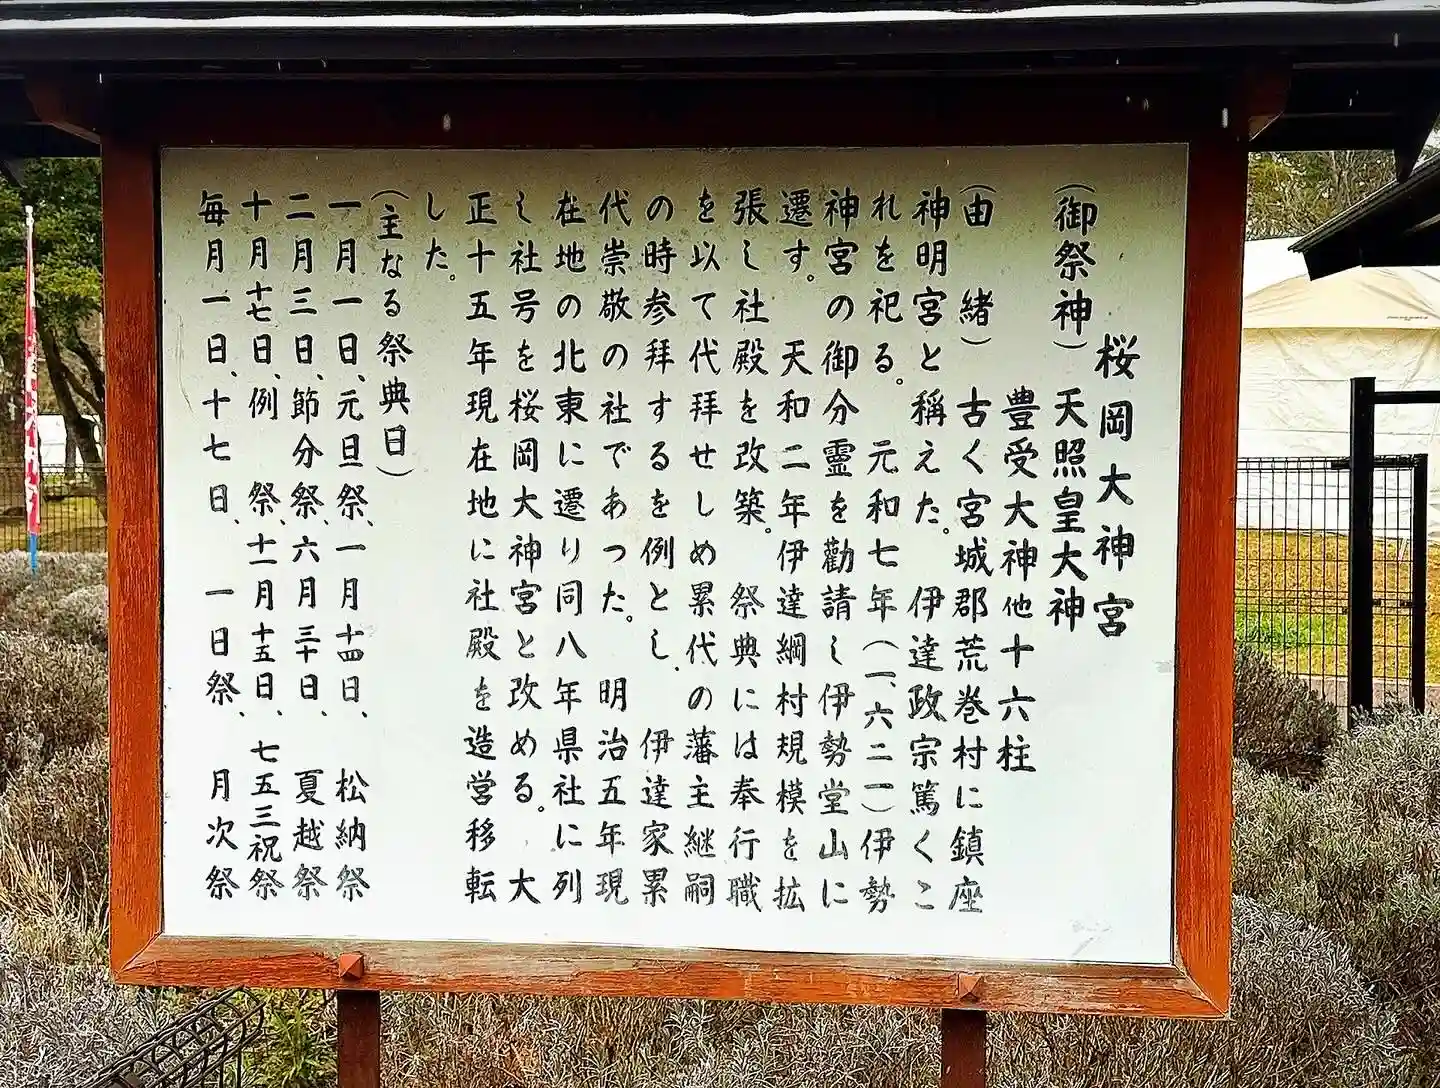 桜岡大神宮
(御祭神)天照皇大神
豊受大神他十六柱
(由 緒) 古く宮城郡荒巻村に鎮座
神明宮と稱えた。 伊達政宗篤くこ
れを祀る。 元和七年(一、六二一)伊勢
神宮の御分霊を勸請し伊勢堂山に
遷す。 天和二年伊達綱村規模を拡
張し社殿を改築。 祭典には奉行職
を以て代拝せしめ累代の藩主継嗣
の時参拝するを例とし、 伊達家累
代崇敬の社であった。 明治五年現
在地の北東に遷り同八年県社に列
し社号を桜岡大神宮と改める。 大
正十五年現在地に社殿を造営移転
した。
(主なる祭典日)
一月一日、元旦祭、一月十四日、 松納祭
二月三日、節分祭、六月三十日、 夏越祭
十月十七日、例 祭、十一月十五日、七五三祝祭
毎月一日、十七日、 一日祭、 月次祭